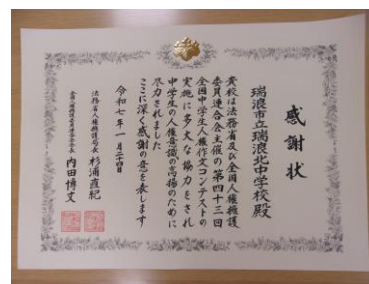 感謝状
瑞浪市立瑞浪北中学校殿
貴校は法務省及び全国人権擁護
委員連合会主催の第四十三回
全国中学生人権作文コンテストの
実施に多大な協力をされ
中学生の人権意識の高揚のために
尽力されました
ここに深く感謝の意を表します
令和七年一月二十四日
法務省人権擁護局長 杉浦直紀
全国人権擁護委員連合会会長 内田博文